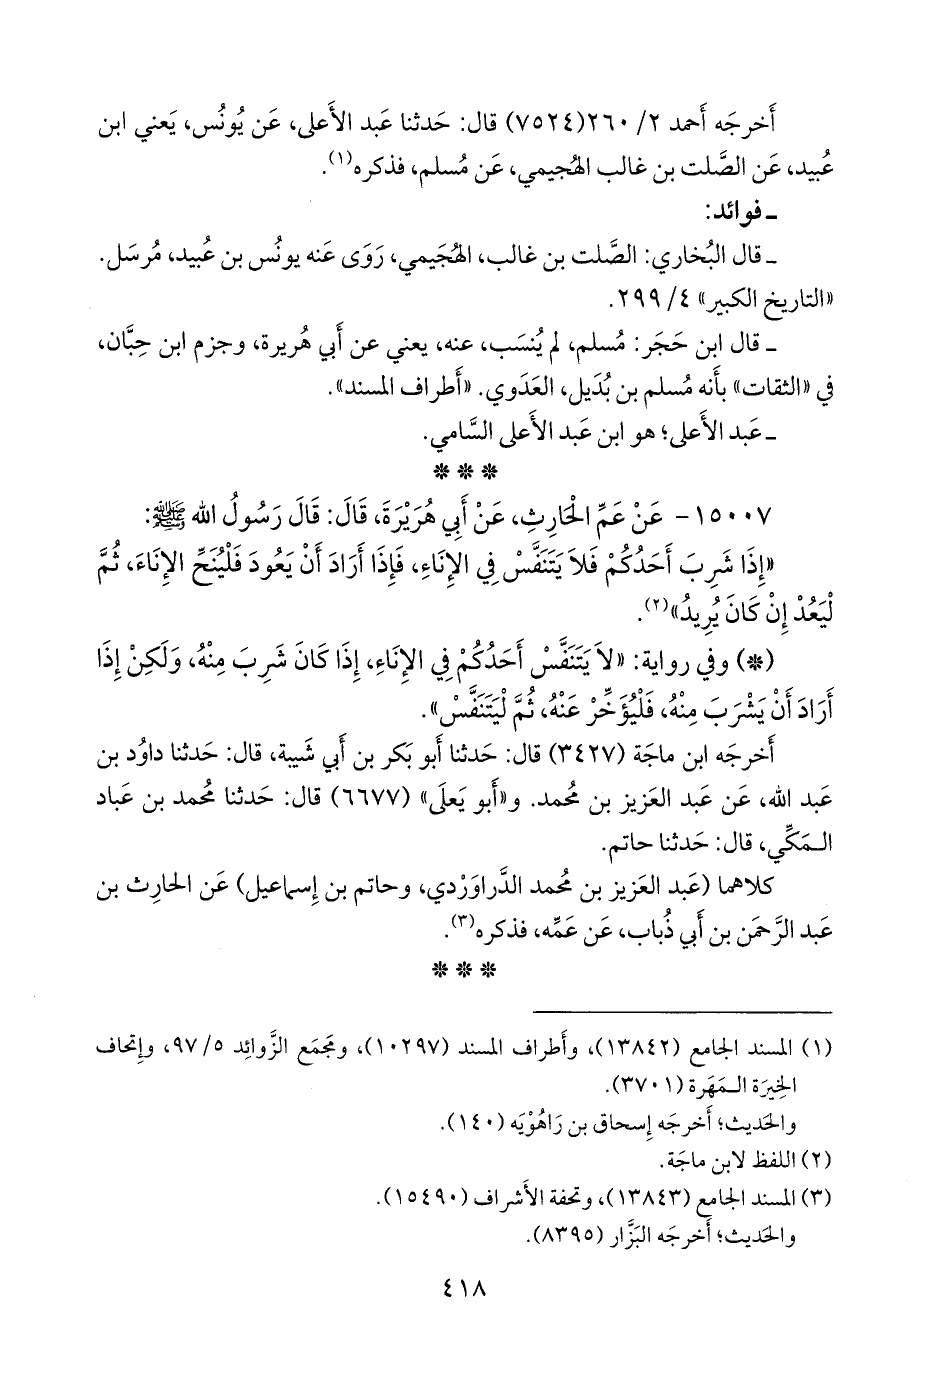 أَخرجَه أَحمد ٢/ ٢٦٠(٧٥٢٤) قال: حَدثنا عَبد الأَعلى، عَن يُونُس، يَعني ابن
عُبيد، عَن الصَّلت بن غالب الهُجيمي، عَن مُسلم، فذكره(١).
ـ فوائد:
ـ قال البُخاري: الصَّلت بن غالب، الهُجَيمي، رَوَى عَنه يونُس بن عُبيد، مُرسَل.
«التاريخ الكبير» ٤/ ٢٩٩.
ـ قال ابن حَجَر: مُسلم، لم يُنسَب، عنه، يعني عن أَبي هُريرة، وجزم ابن حِبَّان،
في «الثقات» بأَنه مُسلم بن بُدَيل، العَدَوي. «أَطراف المسند».
ـ عَبد الأَعلى؛ هو ابن عَبد الأَعلى السَّامي.
* * *
١٥٠٠٧ - عَنْ عَمِّ الْحَارِثِ، عَنْ أَبِي هُرَيْرَةَ، قَالَ: قَالَ رَسُولُ الله ﷺ:
«إِذَا شَرِبَ أَحَدُكُمْ فَلاَ يَتَنَفَّسْ فِي الإِنَاءِ، فَإِذَا أَرَادَ أَنْ يَعُودَ فَلْيُنَحِّ الإِنَاءَ، ثُمَّ
لْيَعُدْ إِنْ كَانَ يُرِيدُ»(٢).
(*) وفي رواية: «لاَ يَتَنَفَّسْ أَحَدُكُمْ فِي الإِنَاءِ، إِذَا كَانَ شَرِبَ مِنْهُ، وَلَكِنْ إِذَا
أَرَادَ أَنْ يَشْرَبَ مِنْهُ، فَلْيُؤَخِّرْ عَنْهُ، ثُمَّ لْيَتَنَفَّسْ».
أَخرجَه ابن ماجَة (٣٤٢٧) قال: حَدثنا أَبو بَكر بن أَبي شَيبة، قال: حَدثنا داوُد بن
عَبد الله، عَن عَبد العَزيز بن مُحمد. و«أَبو يَعلَى» (٦٦٧٧) قال: حَدثنا مُحمد بن عَباد
الـمَكِّي، قال: حَدثنا حاتم.
كلاهما (عَبد العَزيز بن مُحمد الدَّراوَرْدي، وحاتم بن إِسماعيل) عَن الحارِث بن
عَبد الرَّحمَن بن أَبي ذُباب، عَن عَمِّه، فذكره(٣).
* * *
(١) المسند الجامع (١٣٨٤٢)، وأَطراف المسند (١٠٢٩٧)، ومَجمَع الزَّوائِد ٥/ ٩٧، وإِتحاف
الخِيرَة الـمَهَرة (٣٧٠١).
والحَديث؛ أَخرجَه إِسحاق بن رَاهُوْيَه (١٤٠).
(٢) اللفظ لابن ماجَة.
(٣) المسند الجامع (١٣٨٤٣)، وتحفة الأَشراف (١٥٤٩٠).
والحَديث؛ أَخرجَه البَزَّار (٨٣٩٥).
٤١٨